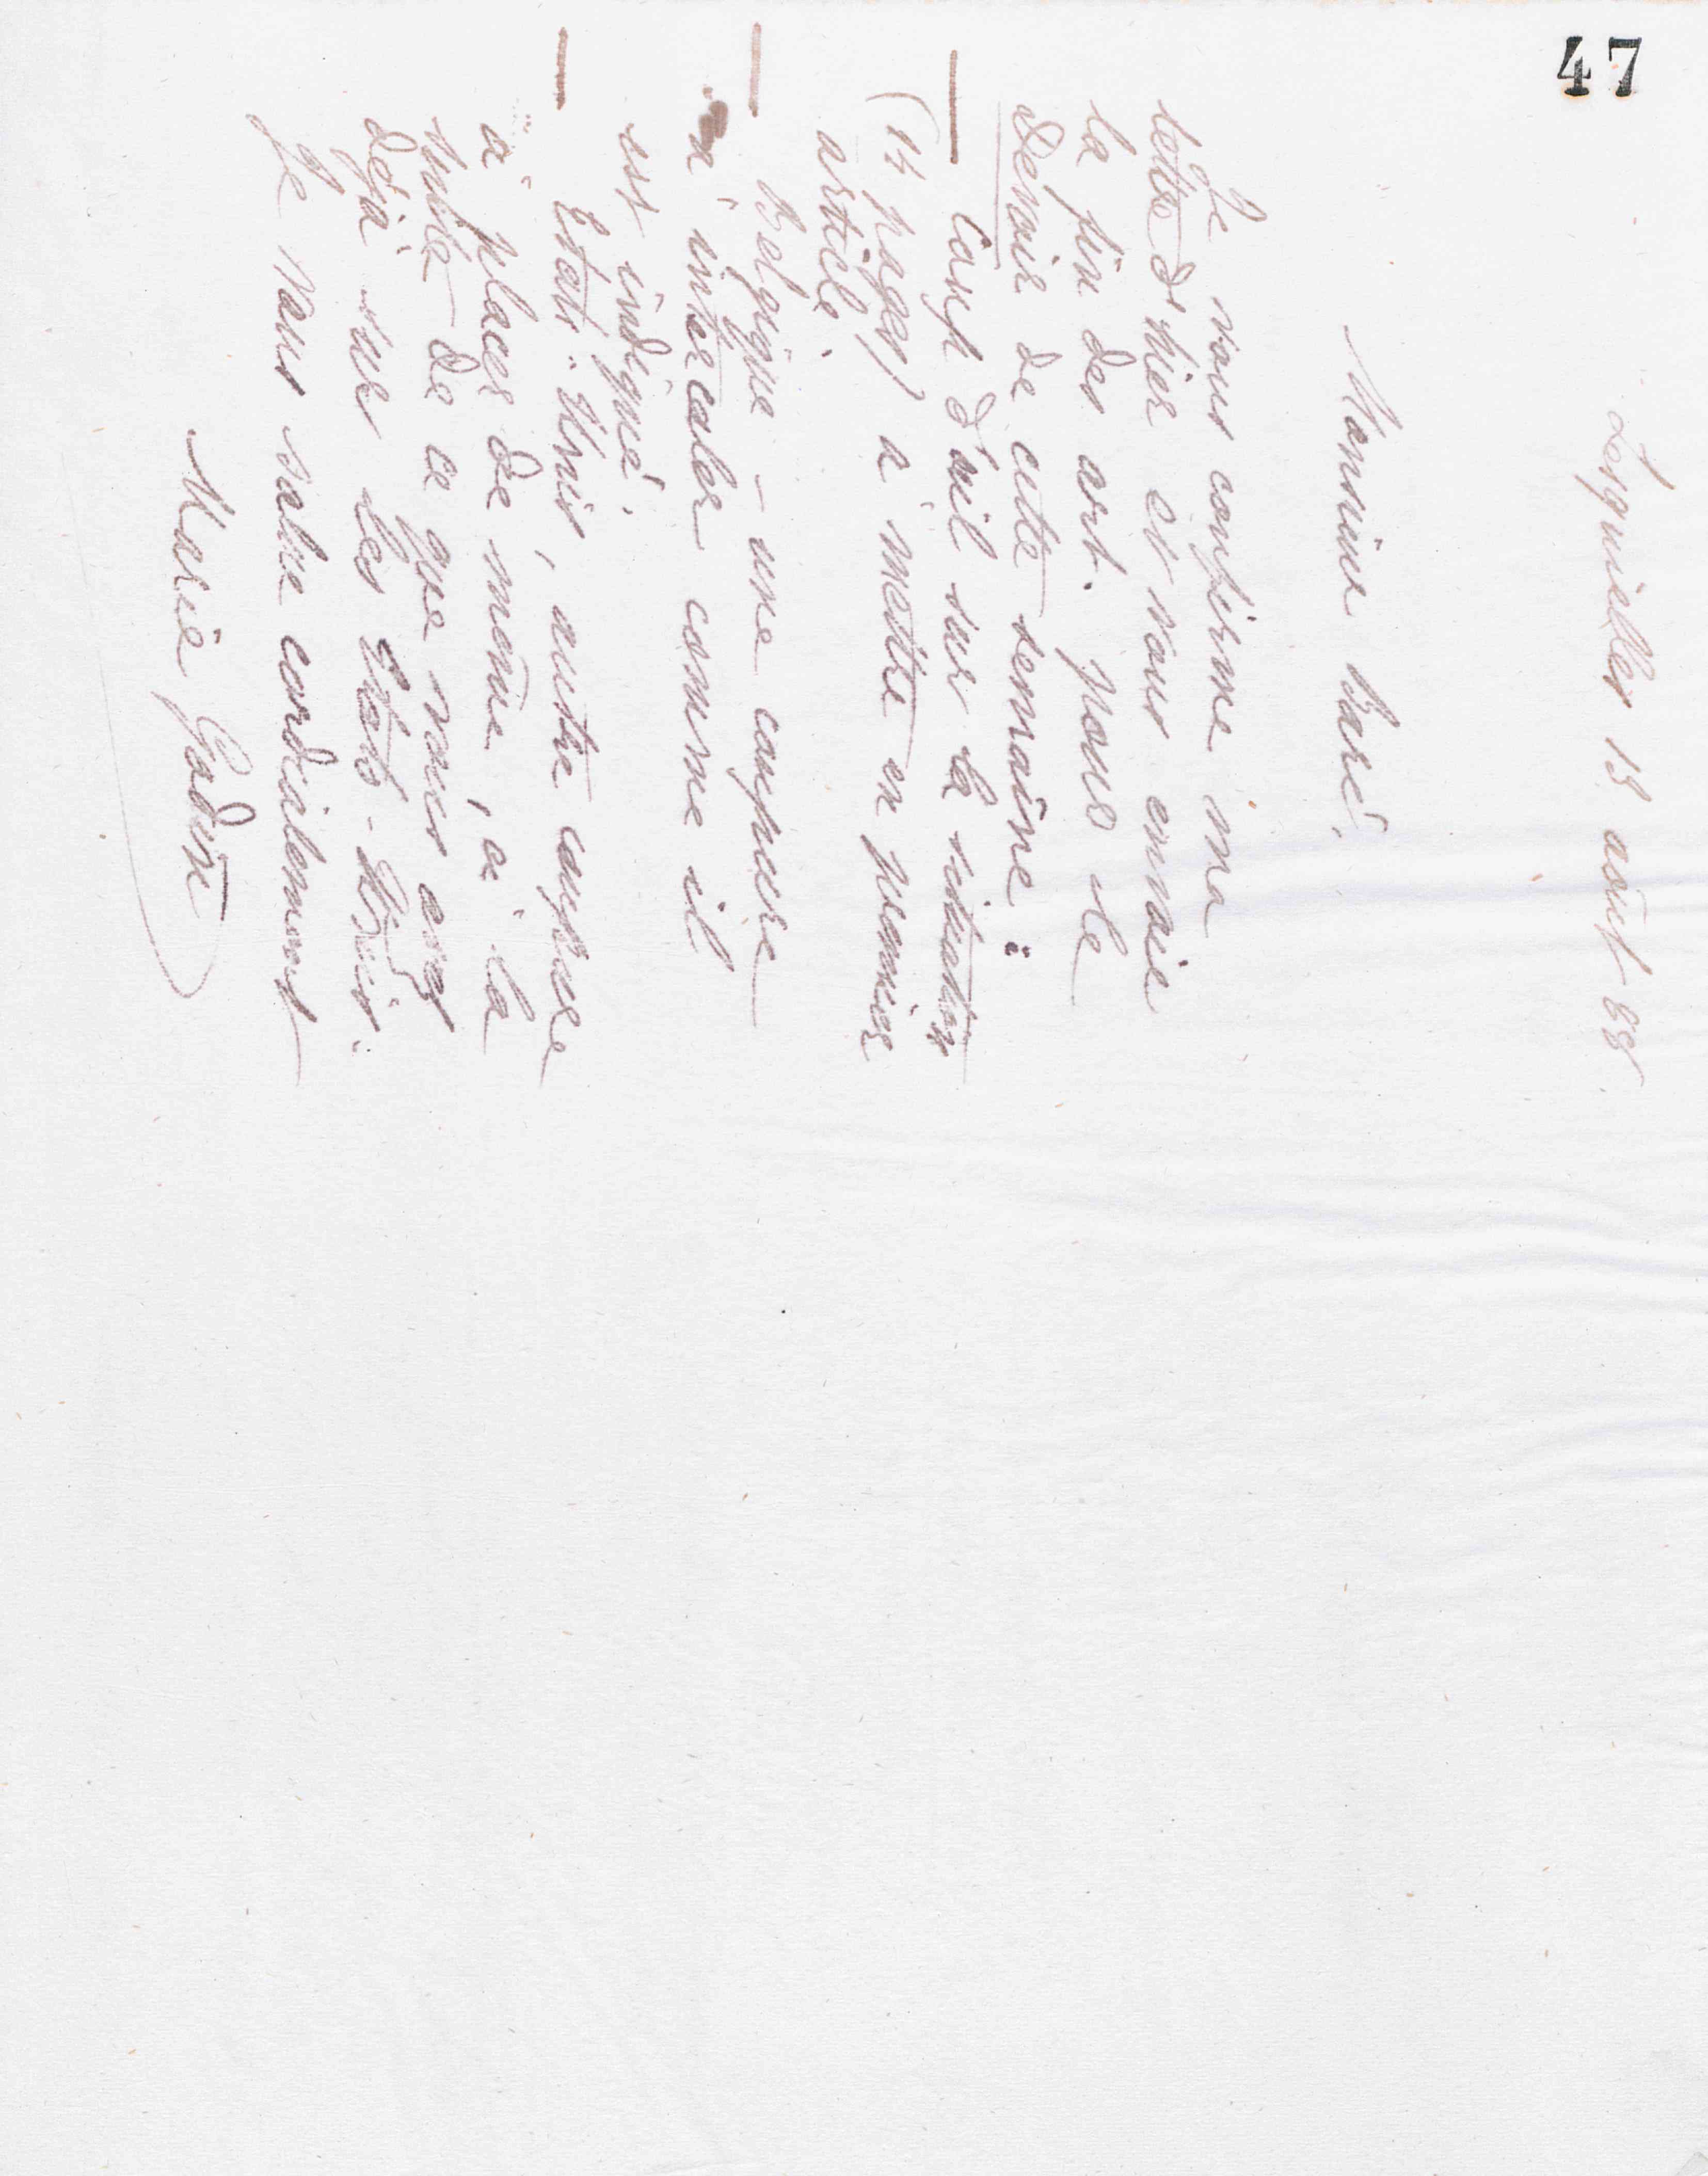 47
Lesquielles 13 août 88.
Monsieur Baré,
Je vous confirme ma
lettre d'hier et vous envoie
la fin des art. pour le
Devoir de cette semaine :
— Coup d'œil sur la situation
(14 pages) à mettre en premier
article.
— Belgique – une coupure
à intercaler comme il
est indiqué.
— Etats-Unis, autre coupure
à placer de même, à la
suite de ce que vous avez
déjà sur les Etats-Unis.
Je vous salue cordialement
Marie Godin